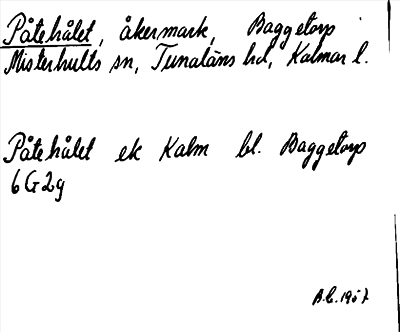 Påtehålet, åkermark, Baggetorp
Misterhults sn, Tunaläns hd, Kalmar l.
Påtehålet ek Kalm bl. Baggetorp
6G2g